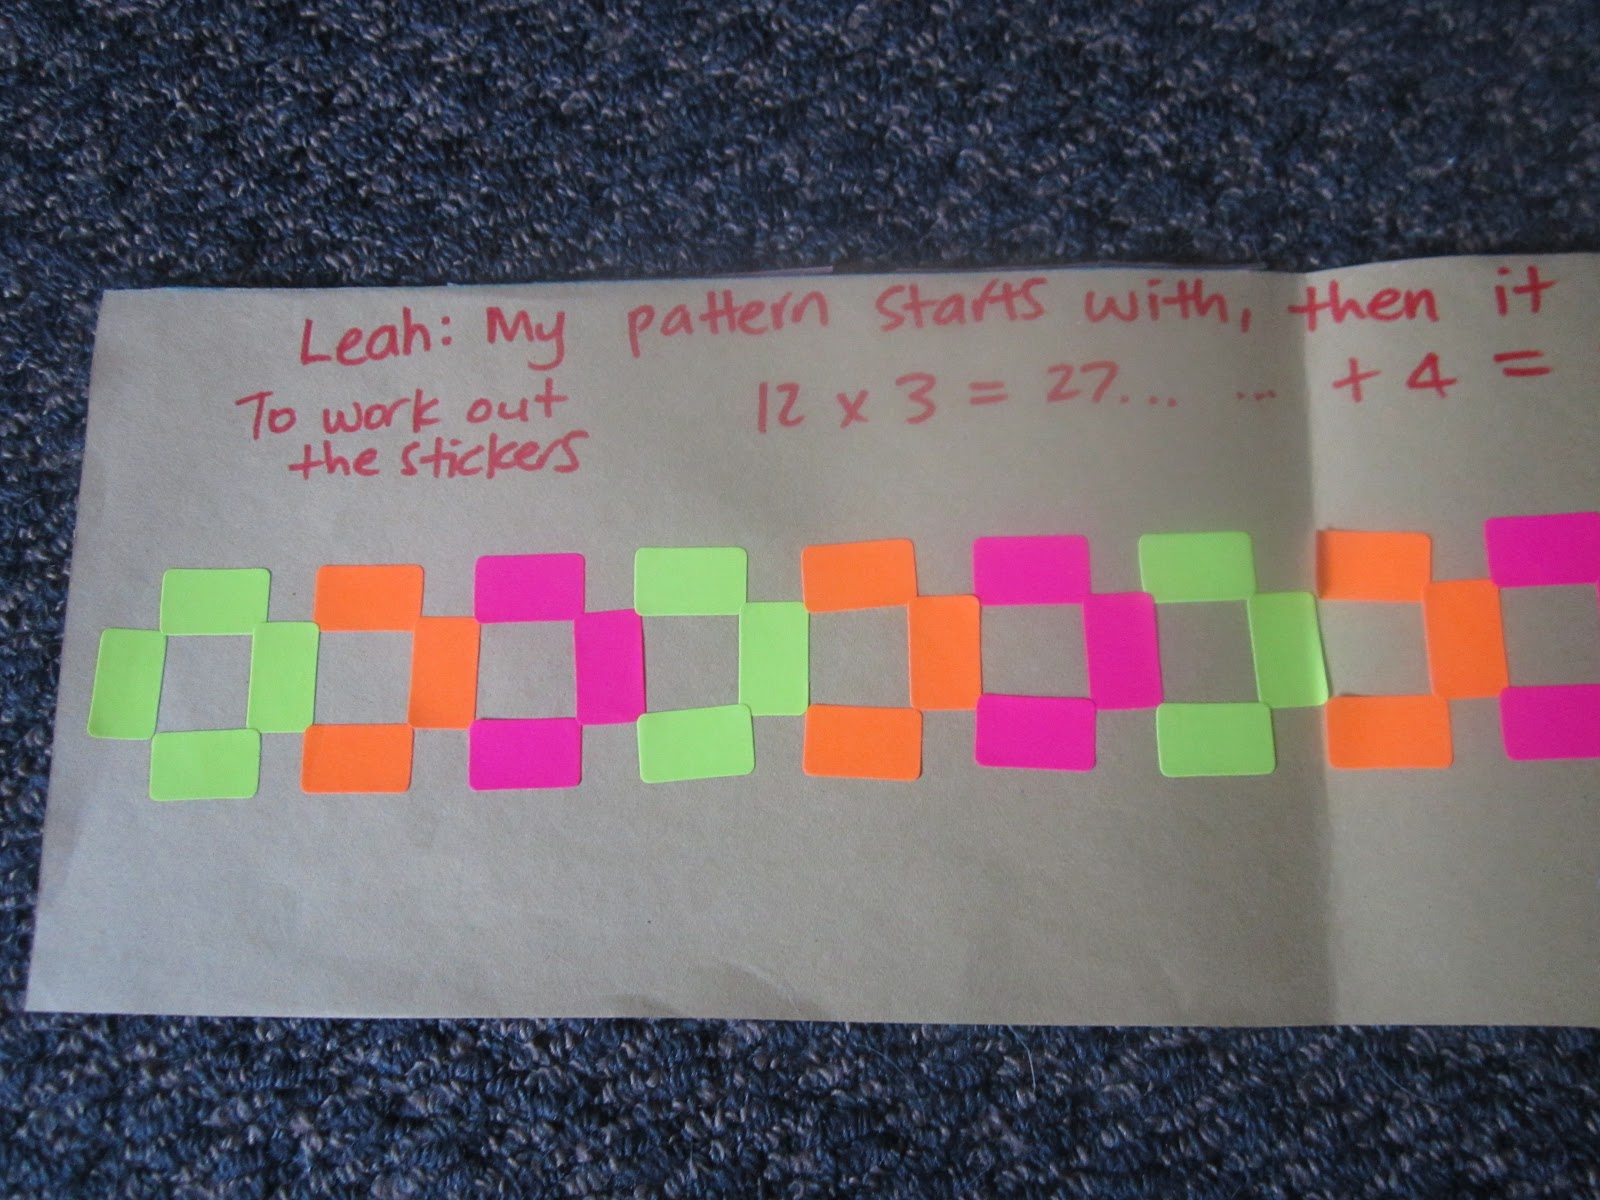 Leah: My pattern starts with, then it
To work out 12 x 3 = 27... ... + 4 =
the stickers